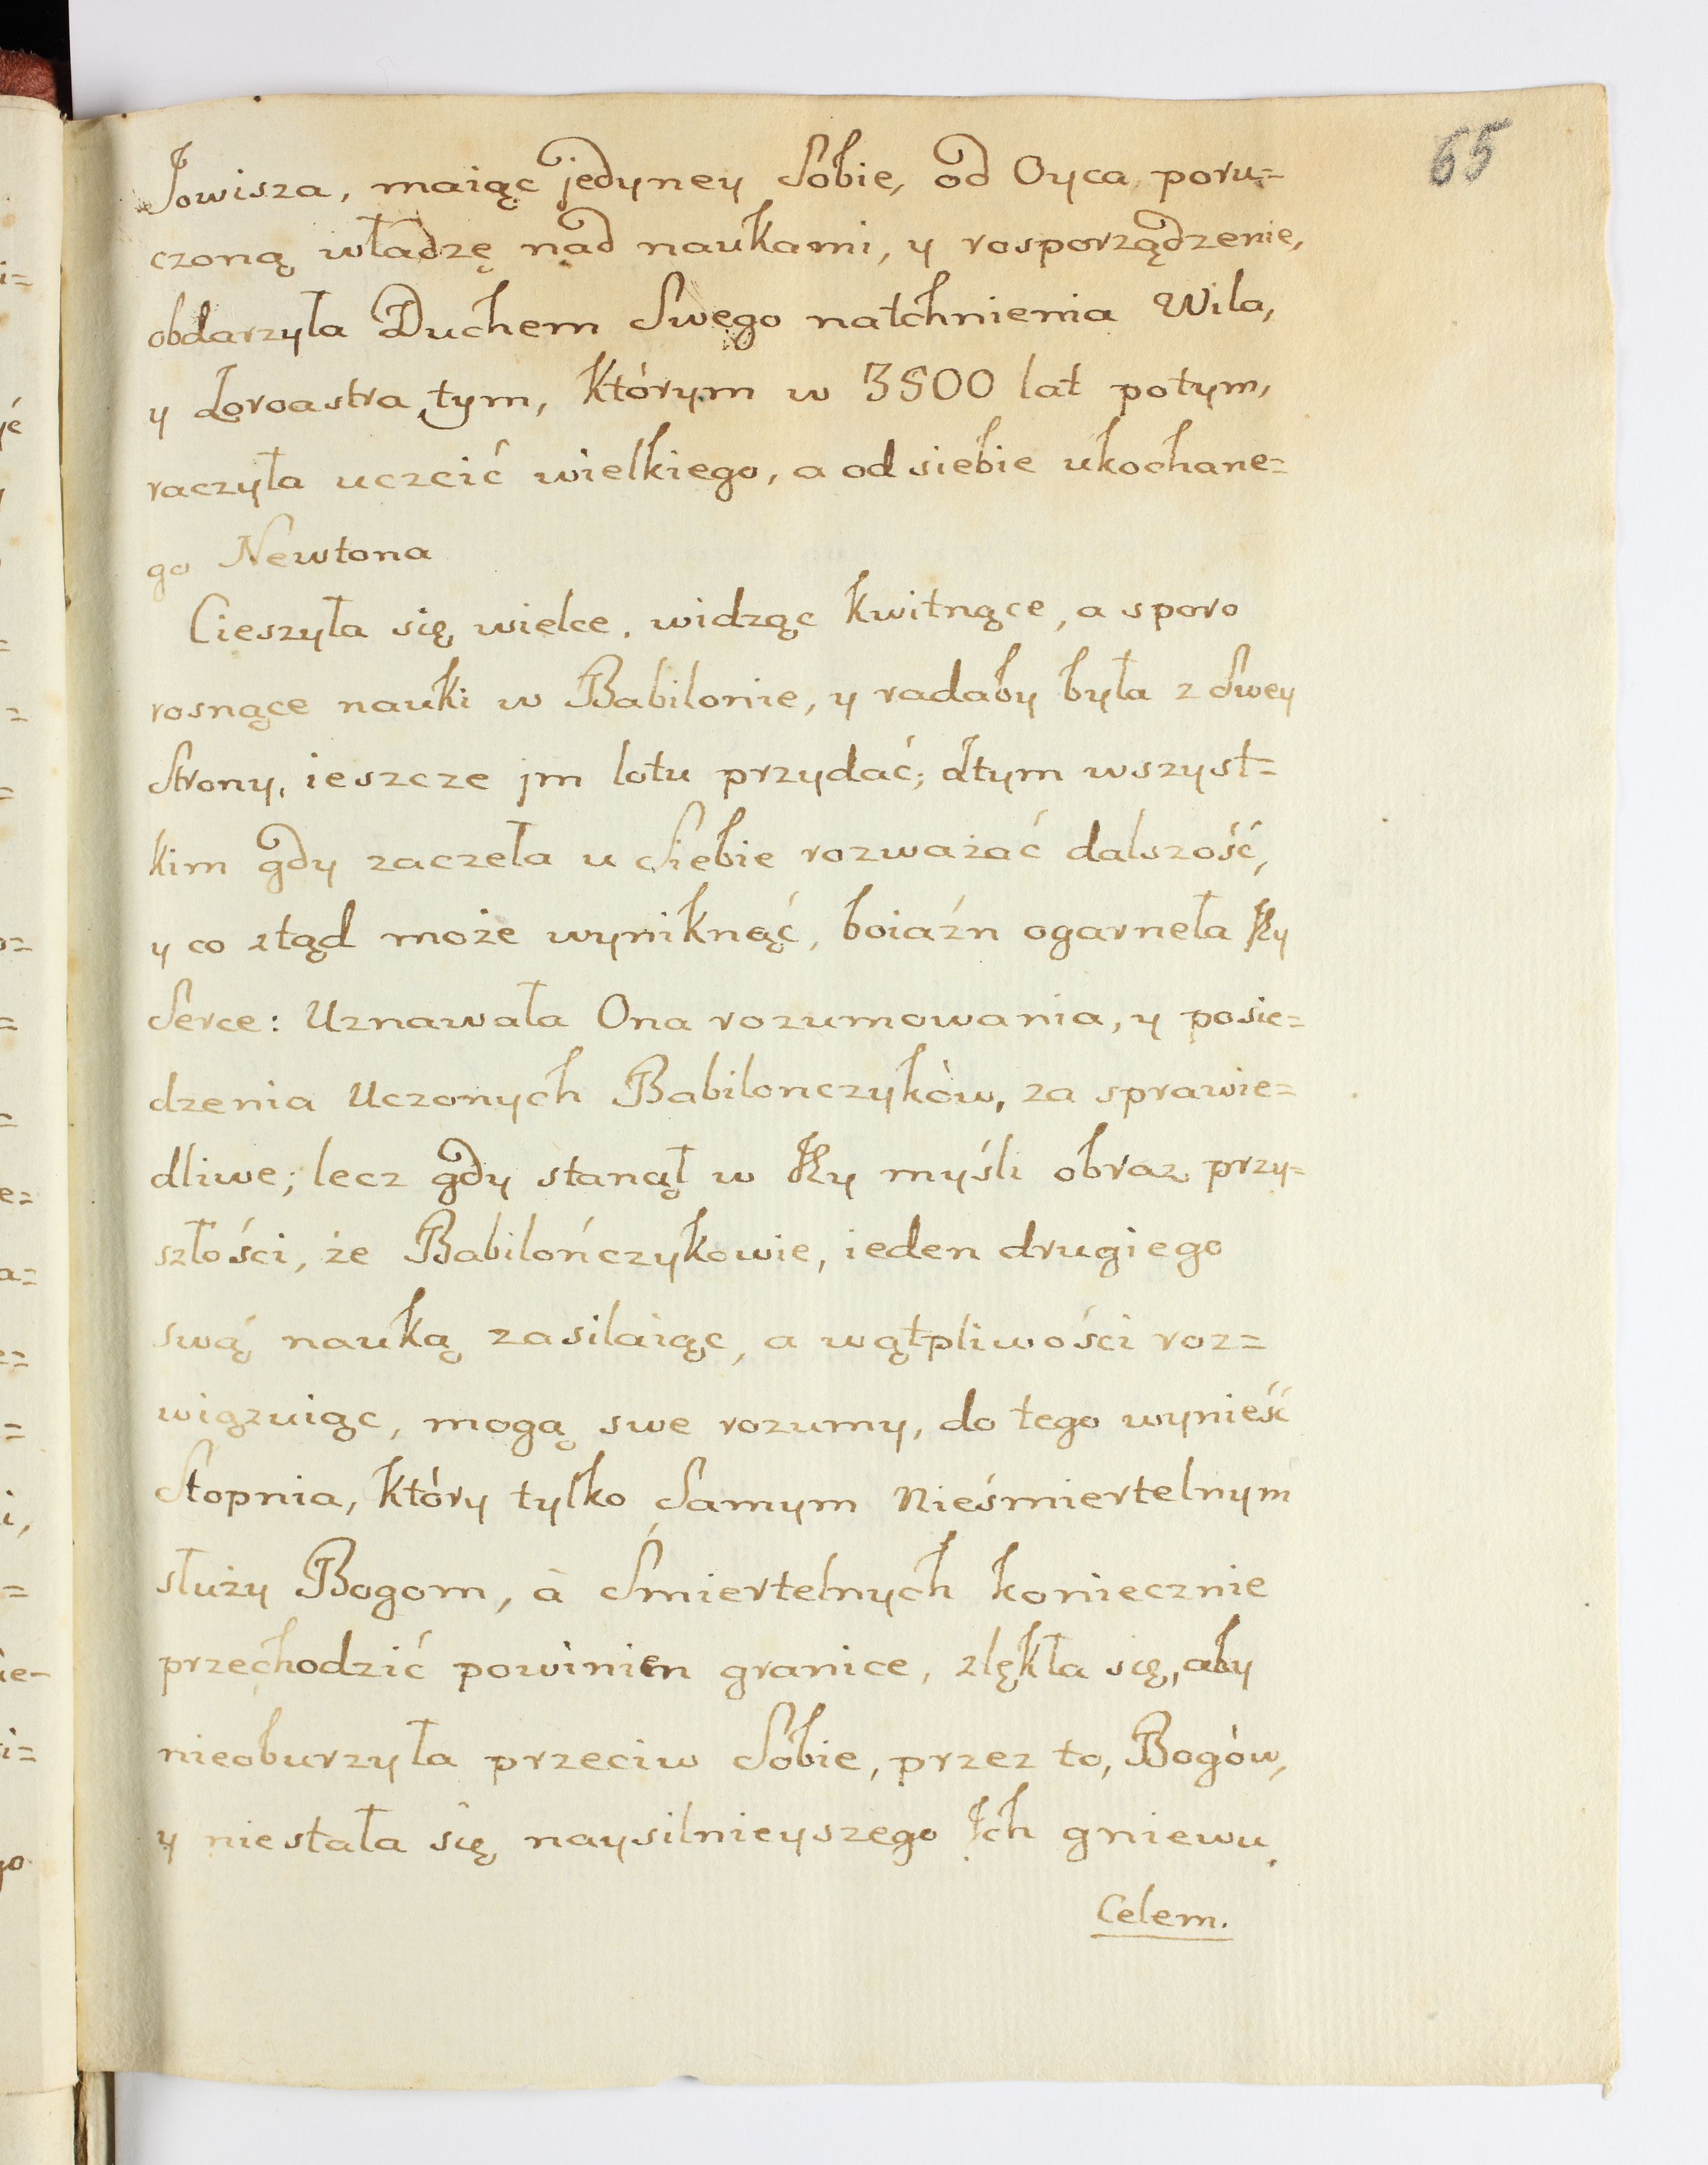 65
Jowisza, maiąc jedyney Sobie, od Oyca, poru=
czoną władzę nad naukami, y rosporządzenie,
obdarzyła Duchem Swego natchnienia Wila,
y Zoroastra tym, którym w 3500 lat potym,
raczyła uczcić wielkiego, a od siebie ukochane=
go Newtona
Cieszyła się wielce, widząc kwitnące, a sporo
rosnące nauki w Babilonie, y radaby była z Swey
Strony, ieszcze jm lotu przydać; Ztym wszyst=
kim gdy zaczeła u Siebie rozważać dalszość,
y co ztąd może wyniknąć, boiaźn ogarneła Jey
Serce: Uznawała Ona rozumowania, y posie=
dzenia Uczonych Babilonczyków, za sprawie=
dliwe; lecz gdy stanął w Jey myśli obraz przy=
szłości, że Babilończykowie, ieden drugiego
swą nauką zasilaiąc, a wątpliwości roz=
wiązuiąc, mogą swe rozumy, do tego wynieść
Stopnia, który tylko Samym Nieśmiertelnym
służy Bogom, à Smiertelnych koniecznie
przechodzić powinien granice, zlękła się, aby
nieoburzyła przeciw Sobie, przez to, Bogów,
y niestała się naysilnieyszego Ich gniewu
Celem.